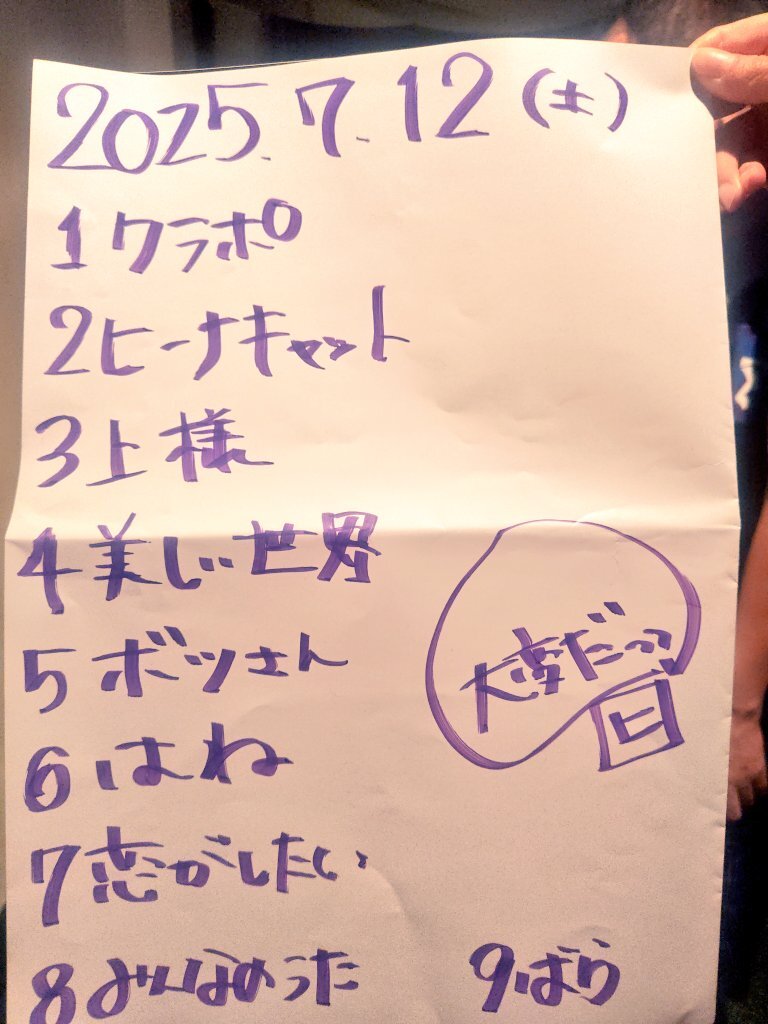 2025.7.12(土)
1クラポ
2ヒーナキャット
3上様
4美しい世界
5ボツさん
6はね
7恋がしたい
8みんなのうた
9ばら
大変だって